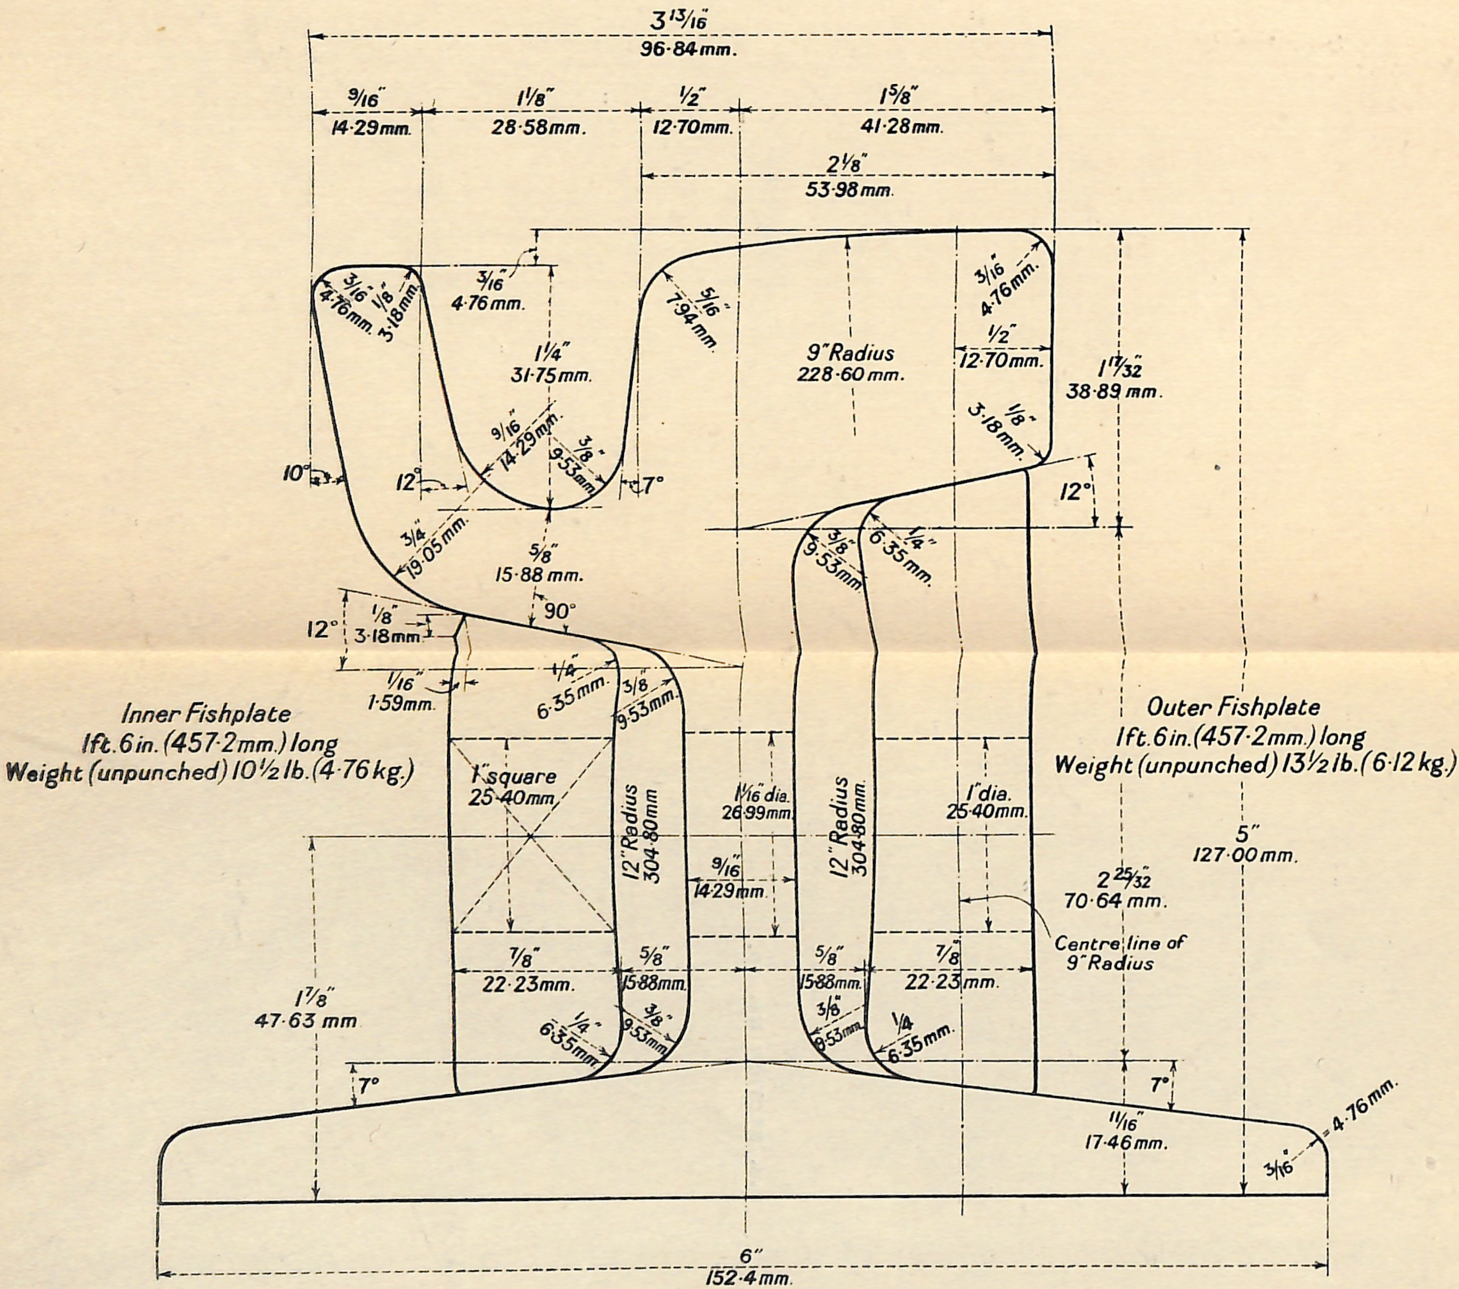 3 13/16"
96·84mm.
9/16" 1 1/8" 1/2" 1 5/8"
14·29mm. 28·58mm. 12·70mm. 41·28mm.
2 1/8"
53·98mm.
3/16"
4·76mm.
1/8"
3·18mm.
3/16"
4·76mm.
5/16"
7·94mm.
3/16"
4·76mm.
1 1/4"
31·75mm.
9" Radius
228·60mm.
1/2"
12·70mm.
1 17/32"
38·89mm.
9/16"
14·29mm.
3/8"
9·53mm.
1/8"
3·18mm.
10°
12°
7°
12°
3/4"
19·05mm.
5/8"
15·88mm.
3/8"
9·53mm.
1/4"
6·35mm.
90°
12°
1/8"
3·18mm.
1/16"
1·59mm.
1/4"
6·35mm.
3/8"
9·53mm.
Inner Fishplate
1ft.6in.(457·2mm.) long
Weight (unpunched) 10½lb.(4·76kg.)
Outer Fishplate
1ft.6in.(457·2mm.) long
Weight (unpunched) 13½lb.(6·12kg.)
1" square
25·40mm.
12" Radius
304·80mm
1 1/16" dia.
26·99mm.
12" Radius
304·80mm.
1" dia.
25·40mm.
5"
127·00mm.
9/16"
14·29mm.
2 25/32"
70·64mm.
Centre line of
9" Radius
7/8" 5/8" 5/8" 7/8"
22·23mm. 15·88mm. 15·88mm. 22·23mm.
1 7/8"
47·63mm
1/4"
6·35mm.
3/8"
9·53mm.
3/8"
9·53mm.
1/4
6·35mm.
7°
7°
11/16"
17·46mm.
3/16" = 4·76mm.
6"
152·4mm.